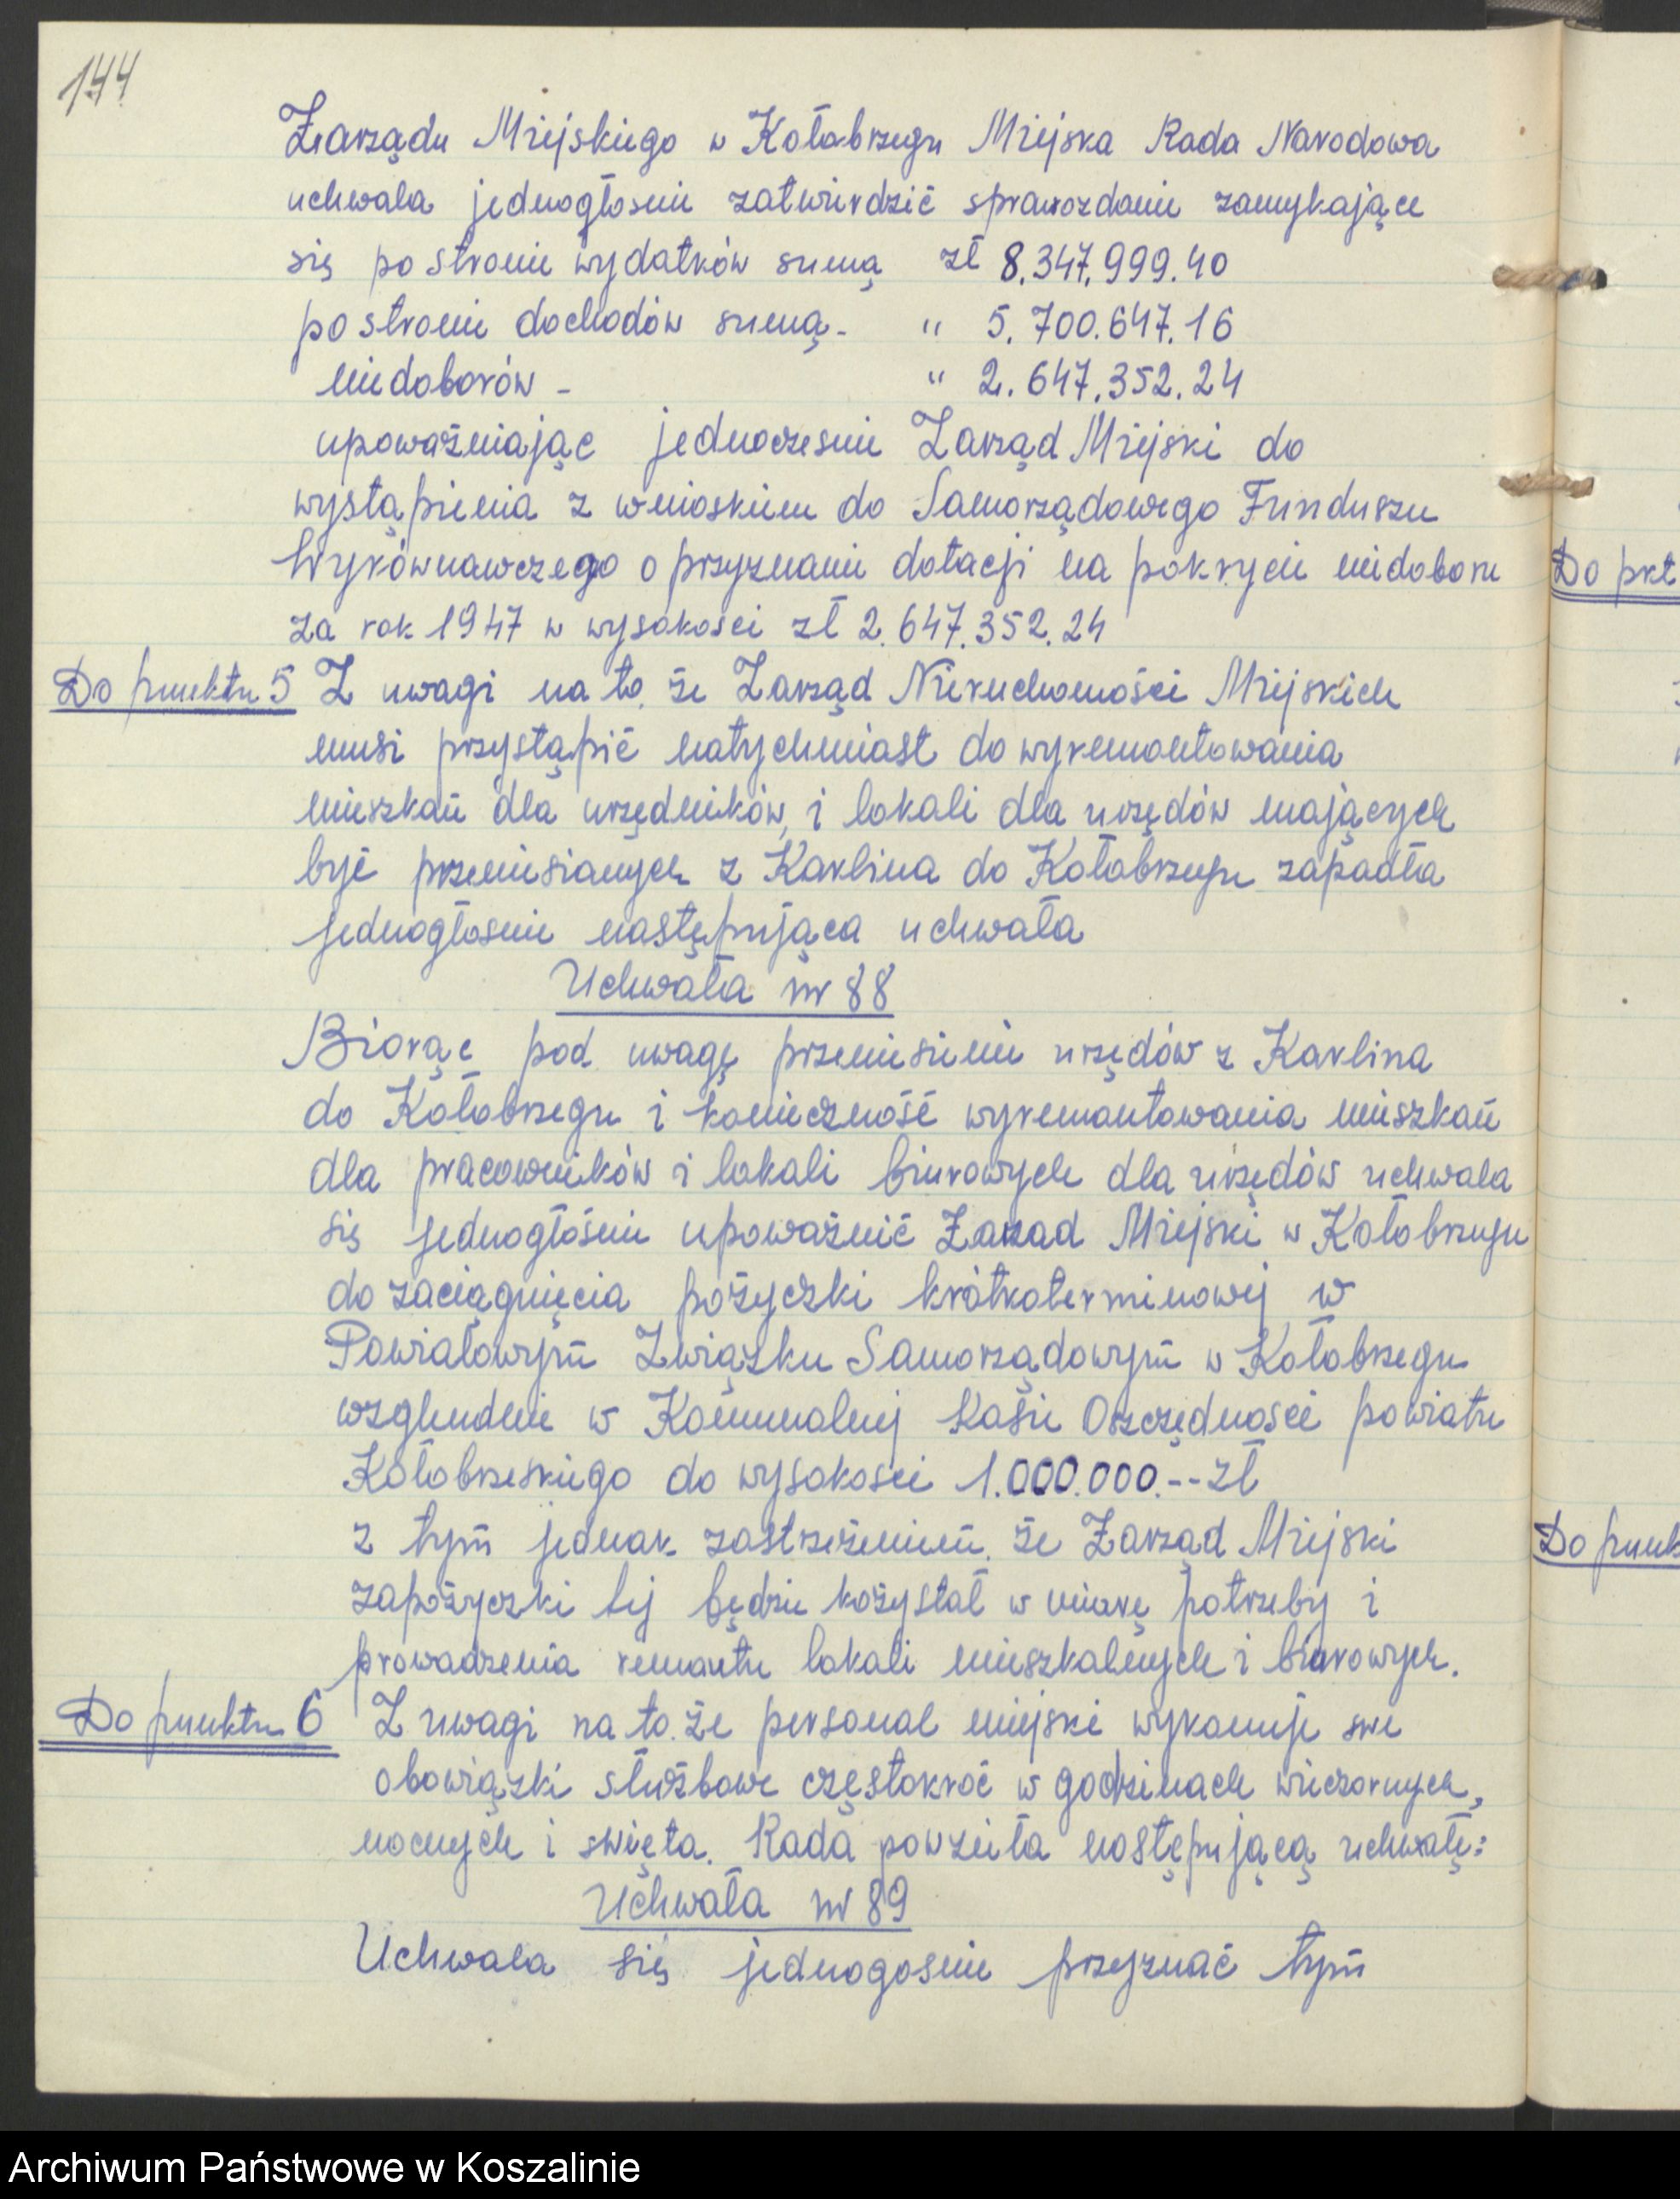 144
Zarządu Miejskiego w Kołobrzegu Miejska Rada Narodowa
uchwala jednogłosnie zatwierdzić sprawozdanie zamykające
się po stronie wydatków sumą zł 8.347.999.40
po stronie dochodów sumą - " 5.700.647.16
niedoborów - " 2.647.352.24
upoważniając jednoczesnie Zarząd Miejski do
wystąpienia z wnioskiem do Samorządowego Funduszu
Wyrównawczego o przyznanie dotacji na pokrycie niedoboru
za rok 1947 w wysokosci zł 2.647.352.24
Do punktu 5 Z uwagi na to, że Zarząd Nieruchomości Miejskich
musi przystąpić natychmiast do wyremontowania
mieszkań dla urzędników, i lokali dla urzędów mających
być przeniesianych z Karlina do Kołobrzegu zapadła
jednogłosnie następująca uchwała
Uchwała nr 88
Biorąc pod uwagę przeniesienie urzędów z Karlina
do Kołobrzegu i konieczność wyremontowania mieszkań
dla pracowników i lokali biurowych dla urzędów uchwala
się jednogłośnie upoważnić Zarzad Miejski w Kołobrzegu
do zaciągnięcia pożyczki krótkoterminowej w
Powiatowym Związku Samorządowym w Kołobrzegu
wzglendnie w Komunalnej Kasie Oszczędnosci powiatu
Kołobrzeskiego do wysokosci 1.000.000.-- zł
z tym jednak zastrzeżeniem, że Zarząd Miejski
zapożyczki tej będzie kożystał w miarę potrzeby i
prowadzenia remontu lokali mieszkalnych i biurowych.
Do punktu 6 Z uwagi na to, że personal miejski wykonuje swe
obowiązki służbowe częstokroć w godzinach wieczornych,
nocnych i swięta. Rada powzieła następującą uchwałę:
Uchwała nr 89
Uchwala się jednogosnie przyznać tym
Do pkt
Do punk
Archiwum Państwowe w Koszalinie